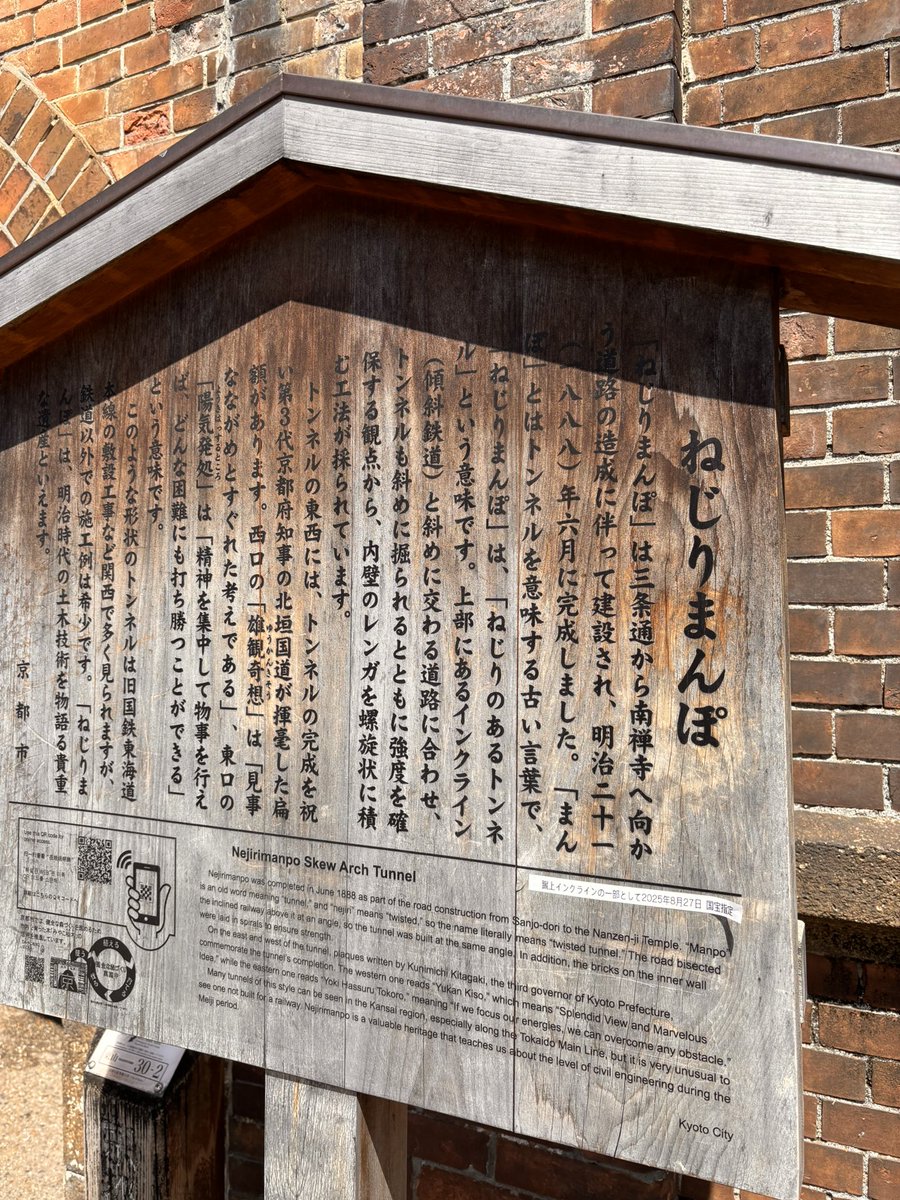 ねじりまんぽ
「ねじりまんぽ」は三条通から南禅寺へ向か
う道路の造成に伴って建設され、明治二十一
(一八八八)年六月に完成しました。「まん
ぽ」とはトンネルを意味する古い言葉で、
「ねじりまんぽ」は、「ねじりのあるトンネ
ル」という意味です。上部にあるインクライン
(傾斜鉄道)と斜めに交わる道路に合わせ、
トンネルも斜めに掘られるとともに強度を確
保する観点から、内壁のレンガを螺旋状に積
む工法が採られています。
トンネルの東西には、トンネルの完成を祝
い第3代京都府知事の北垣国道が揮毫した扁
額があります。西口の「雄観奇想」は「見事
なながめとすぐれた考えである」、東口の
「陽気発処」は「精神を集中して物事を行え
ば、どんな困難にも打ち勝つことができる」
という意味です。
このような形状のトンネルは旧国鉄東海道
本線の敷設工事など関西で多く見られますが、
鉄道以外での施工例は希少です。「ねじりま
んぽ」は、明治時代の土木技術を物語る貴重
な遺産といえます。
京都市
Nejirimanpo Skew Arch Tunnel
蹴上インクラインの一部として2025年8月27日 国宝指定
Nejirimanpo was completed in June 1888 as part of the road construction from Sanjo-dori to the Nanzen-ji Temple. "Manpo"
is an old word meaning "tunnel," and "nejiri" means "twisted," so the name literally means "twisted tunnel." The road bisected
the inclined railway above it at an angle, so the tunnel was built at the same angle. In addition, the bricks on the inner wall
were laid in spirals to ensure strength.
On the east and west of the tunnel, plaques written by Kunimichi Kitagaki, the third governor of Kyoto Prefecture,
commemorate the tunnel's completion. The western one reads "Yukan Kiso," which means "Splendid View and Marvelous
Idea," while the eastern one reads "Yoki Hassuru Tokoro," meaning "If we focus our energies, we can overcome any obstacle."
Many tunnels of this style can be seen in the Kansai region, especially along the Tokaido Main Line, but it is very unusual to
see one not built for a railway. Nejirimanpo is a valuable heritage that teaches us about the level of civil engineering during the
Meiji period.
Kyoto City
Use this QR code for
30-2